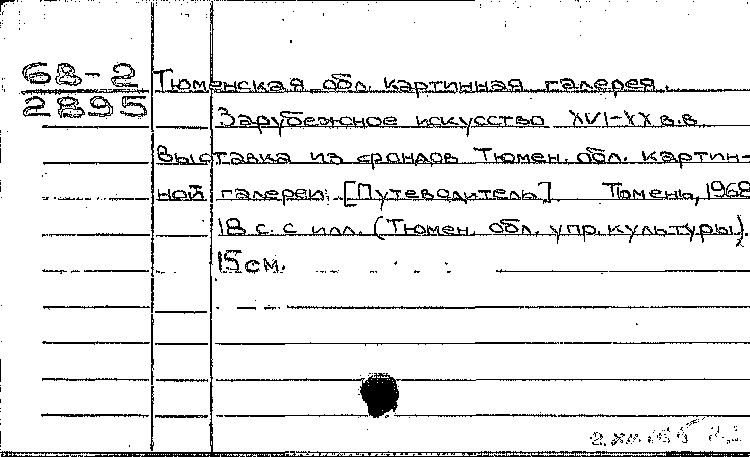 68-2 Тюменская обл. картинная галерея.
2895 Зарубежное искусство XVI-XX в.в.
Выставка из фондов Тюмен. обл. картин-
ной галереи. [Путеводитель]. Тюмень, 1968
18 с. с илл. (Тюмен. обл. упр. культуры).
15 см.